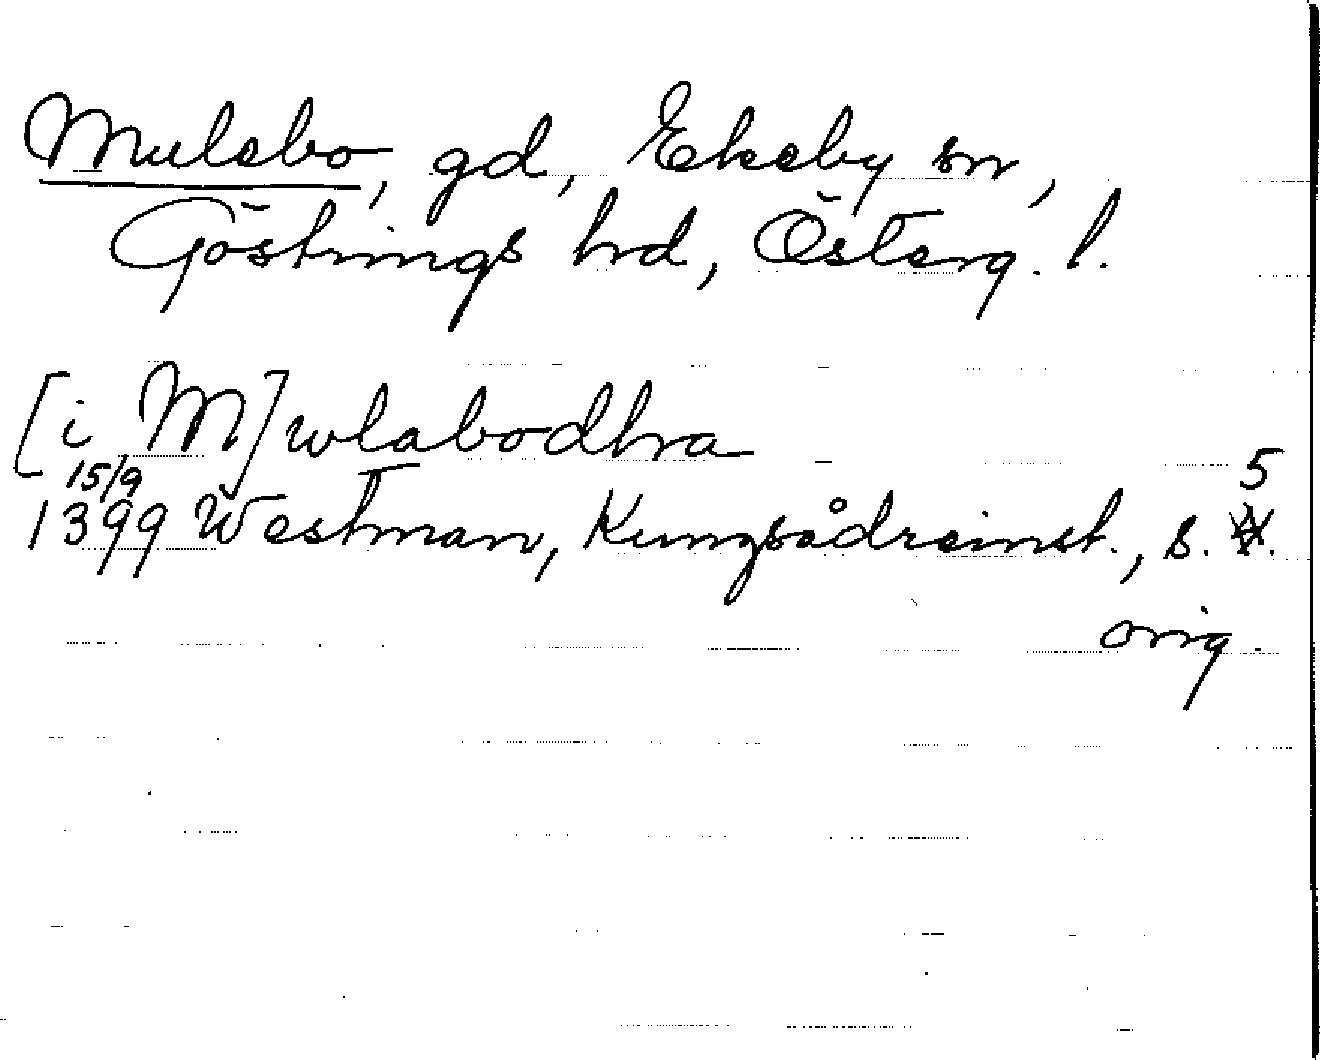 Mulebo, gd, Ekeby sn,
Göstrings hrd, Österg. l.
[i M]wlabodhra
15/9
1399 Westman, Kungsådreinst., s. 5.
orig.